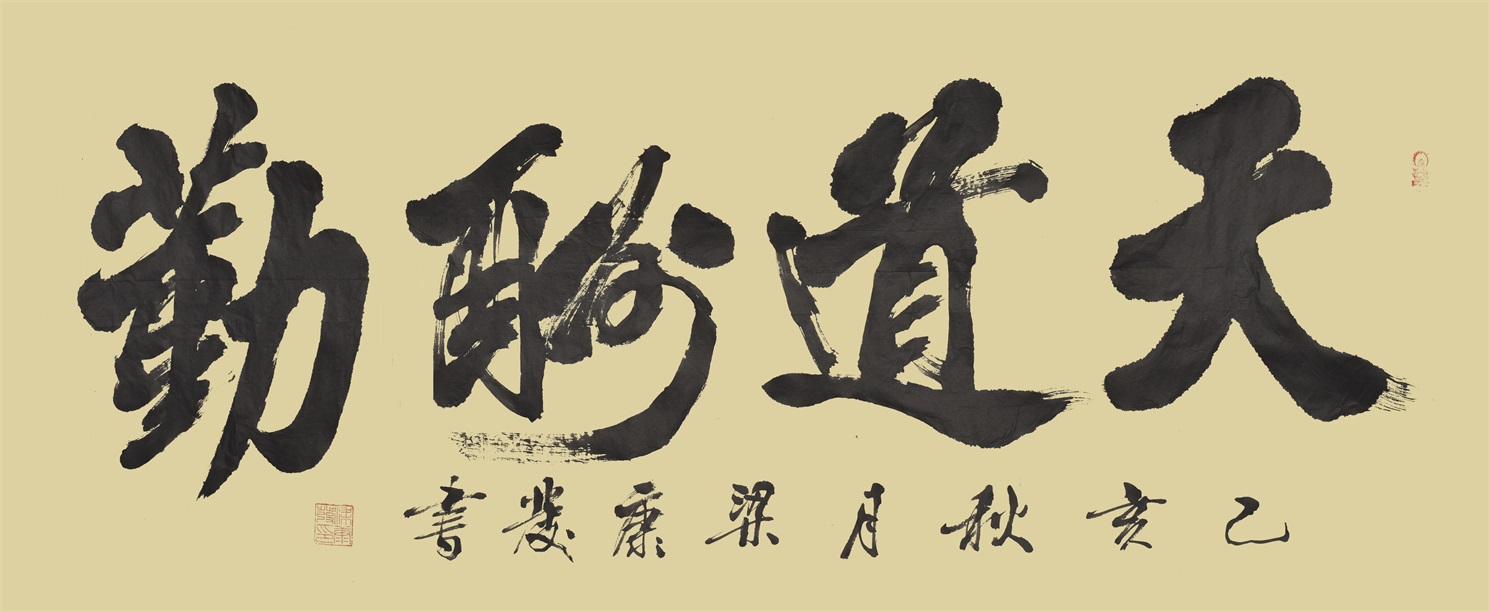 天道酬勤
己亥秋月梁康發書